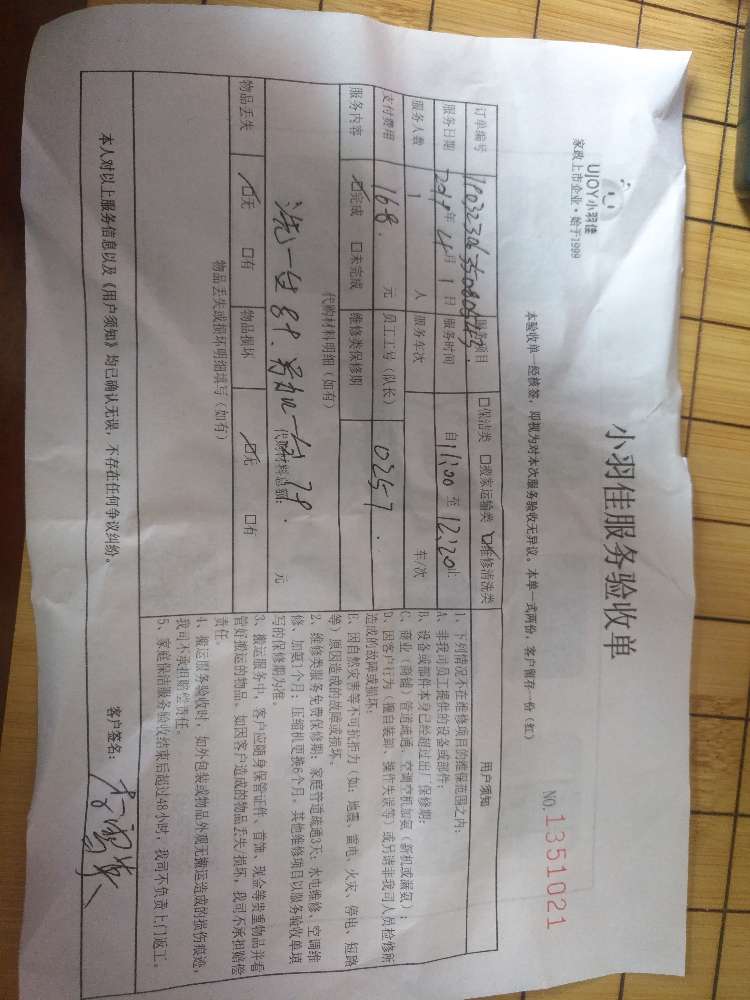 UJOY小羽佳
家政上市企业·始于1999
小羽佳服务验收单
NO.1351021
本验收单一经核签，即视为对本次服务验收无异议。本单一式两份，客户留存一份（红）
订单编号
服务项目 口保洁类 口搬家运输类 ☑维修清洗类
服务日期 2019年4月1日 服务时间 自11:00至12:20止
服务人数 1 人 服务车次 车/次
支付费用 168. 元 员工工号（队长） 0257.
服务内容 ☑完成 口未完成 维修类保修期
代购材料明细（如有）
洗一台
代购材料总额： 元
物品丢失 ☑无 口有 物品损坏 ☑无 口有
物品丢失或损坏明细填写（如有）
用户须知
1、下列情况不在维修项目的维保范围之内：
A、非我司员工提供的设备或部件；
B、设备或部件本身已经超过出厂保修期；
C、商业（商铺）管道疏通、空调空机加氨（新机或漏氨）；
D、因客户行为（擅自装卸、操作失误等）或另请非我司人员检修所
造成的故障或损坏；
E、因自然灾害等不可抗拒力（如：地震、雷电、火灾、停电、短路
等）原因造成的故障或损坏。
2、维修类服务免费保修期：家庭管道疏通3天；水电维修、空调维
修、加氨1个月；压缩机更换6个月。其他维修项目以服务验收单填
写的保修期为准。
3、搬运服务中，客户应随身保管证件、首饰、现金等贵重物品并看
管好搬运的物品。如因客户造成的物品丢失/损坏，我司不承担赔偿
责任。
4、搬运服务验收时，如外包装或物品外观无搬运造成的损伤痕迹，
我司不承担赔偿责任。
5、家庭保洁服务验收结束后超过48小时，我司不负责上门返工。
本人对以上服务信息以及《用户须知》均已确认无误，不存在任何争议纠纷。
客户签名：